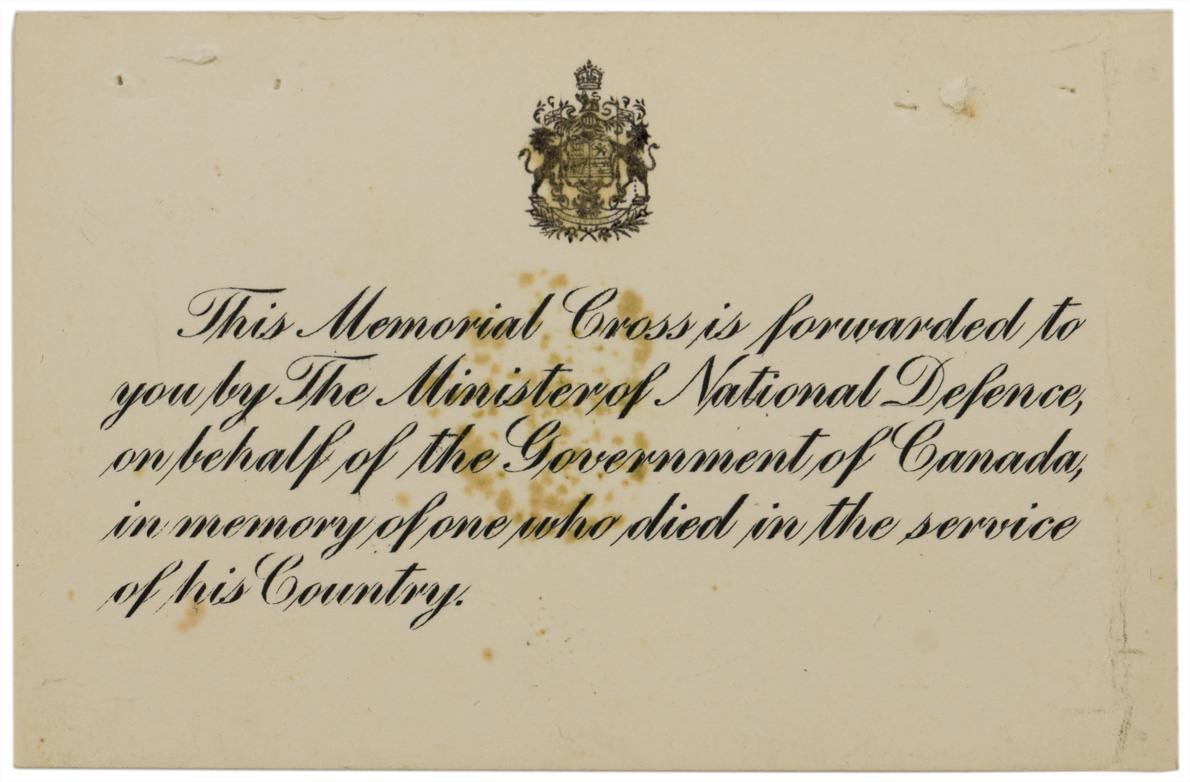 This Memorial Cross is forwarded to
you by The Minister of National Defence,
on behalf of the Government of Canada,
in memory of one who died in the service
of his Country.